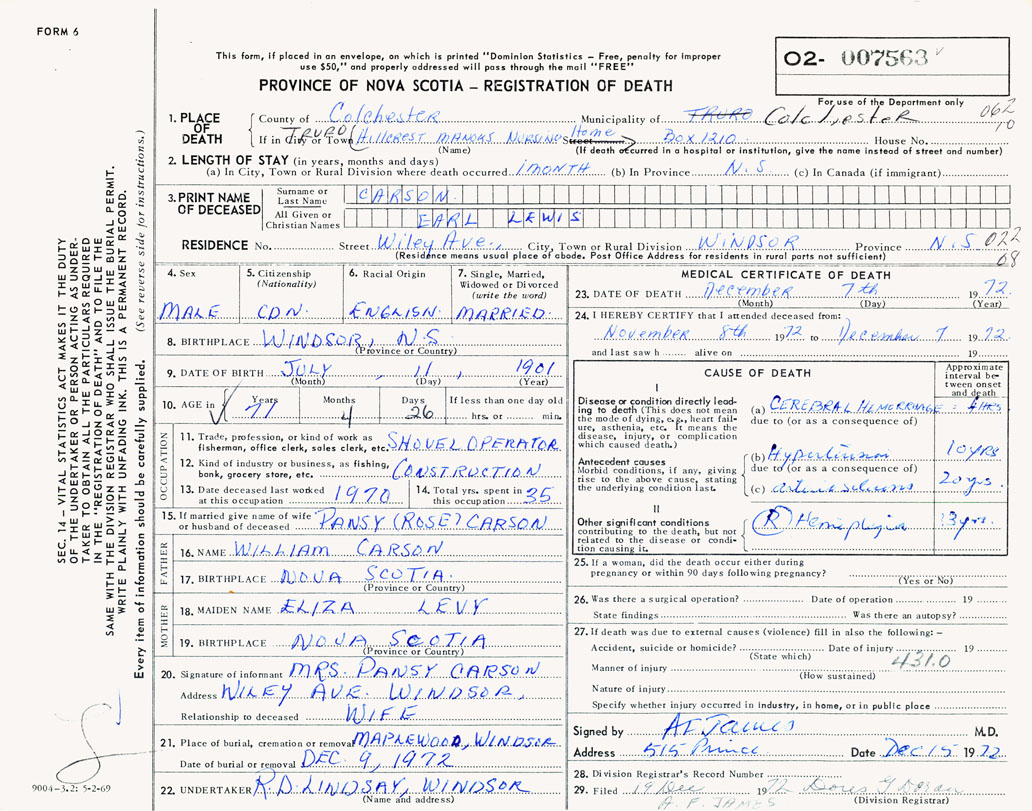 FORM 6
This form, if placed in an envelope, on which is printed "Dominion Statistics – Free, penalty for improper
use $50," and properly addressed will pass through the mail "FREE"
O2- 007563
PROVINCE OF NOVA SCOTIA – REGISTRATION OF DEATH
For use of the Department only
062
10
1. PLACE OF DEATH
County of Colchester Municipality of TRURO Colchester
If in City or Town TRURO (HILLCREST MANORS NURSING Street Home BOX 1210 House No.
(Name) (If death occurred in a hospital or institution, give the name instead of street and number)
2. LENGTH OF STAY (in years, months and days)
(a) In City, Town or Rural Division where death occurred 1 MONTH (b) In Province N.S (c) In Canada (if immigrant)
3. PRINT NAME OF DECEASED
Surname or Last Name CARSON
All Given or Christian Names EARL LEWIS
RESIDENCE No. Street Wiley Ave., City, Town or Rural Division WINDSOR Province N.S 022
08
(Residence means usual place of abode. Post Office Address for residents in rural parts not sufficient)
4. Sex MALE
5. Citizenship (Nationality) CDN.
6. Racial Origin ENGLISH
7. Single, Married, Widowed or Divorced (write the word) MARRIED.
8. BIRTHPLACE WINDSOR, N.S
(Province or Country)
9. DATE OF BIRTH JULY, 11, 1901
(Month) (Day) (Year)
10. AGE in Years 71 Months 4 Days 26 If less than one day old hrs. or min.
OCCUPATION
11. Trade, profession, or kind of work as fisherman, office clerk, sales clerk, etc. SHOVEL OPERATOR
12. Kind of industry or business, as fishing, bank, grocery store, etc. CONSTRUCTION
13. Date deceased last worked at this occupation 1970
14. Total yrs. spent in this occupation 35
15. If married give name of wife or husband of deceased PANSY (ROSE) CARSON
FATHER
16. NAME WILLIAM CARSON
17. BIRTHPLACE NOVA SCOTIA.
(Province or Country)
MOTHER
18. MAIDEN NAME ELIZA LEVY
19. BIRTHPLACE NOVA SCOTIA
(Province or Country)
20. Signature of informant MRS. PANSY CARSON
Address WILEY AVE. WINDSOR,
Relationship to deceased WIFE
21. Place of burial, cremation or removal MAPLEWOOD, WINDSOR
Date of burial or removal DEC. 9, 1972
22. UNDERTAKER R.D. LINDSAY, WINDSOR
(Name and address)
MEDICAL CERTIFICATE OF DEATH
23. DATE OF DEATH December 7th 1972.
(Month) (Day) (Year)
24. I HEREBY CERTIFY that I attended deceased from:
November 8th 1972 to December 7 1972
and last saw h alive on 19
CAUSE OF DEATH
Approximate interval between onset and death
I
Disease or condition directly leading to death (This does not mean the mode of dying, e.g., heart failure, asthenia, etc. It means the disease, injury, or complication which caused death.)
(a) CEREBRAL HEMORRHAGE HRS
due to (or as a consequence of)
Antecedent causes
Morbid conditions, if any, giving rise to the above cause, stating the underlying condition last.
(b) Hypertension 10 yrs
due to (or as a consequence of)
(c) 20 yrs.
II
Other significant conditions contributing to the death, but not related to the disease or condition causing it.
(R) Hemiplegia 3 yrs.
25. If a woman, did the death occur either during pregnancy or within 90 days following pregnancy?
(Yes or No)
26. Was there a surgical operation? Date of operation 19
State findings Was there an autopsy?
27. If death was due to external causes (violence) fill in also the following: –
Accident, suicide or homicide? Date of injury 19
(State which)
431.0
Manner of injury
(How sustained)
Nature of injury
Specify whether injury occurred in industry, in home, or in public place
Signed by A F James M.D.
Address 515 Prince Date Dec 15 1972
28. Division Registrar's Record Number
29. Filed 19 Dec 1972 Doris G Doran
A. F. JAMES (Division Registrar)
SEC. 14 – VITAL STATISTICS ACT MAKES IT THE DUTY
OF THE UNDERTAKER OR PERSON ACTING AS UNDER-
TAKER TO OBTAIN ALL THE PARTICULARS REQUIRED
IN THE "REGISTRATION OF DEATH" AND TO FILE THE
SAME WITH THE DIVISION REGISTRAR WHO SHALL ISSUE THE BURIAL PERMIT.
WRITE PLAINLY WITH UNFADING INK. THIS IS A PERMANENT RECORD.
Every item of information should be carefully supplied. (See reverse side for instructions.)
9004-3.2: 5-2-69